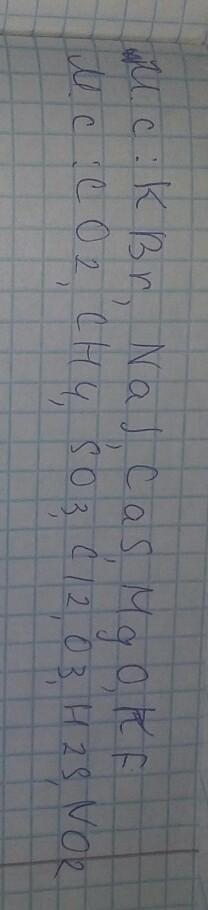 И с : KBr, NaJ, CaS, MgO, KF
М с : CO2, CH4, SO3, Cl2, O3, H2S, NO2